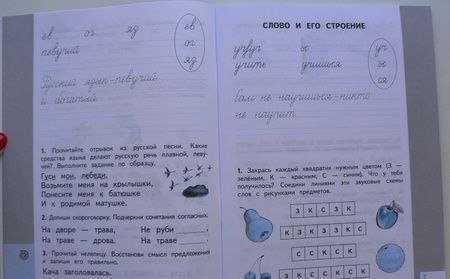 ев ог яд
певучий
ев
ог
яд
Русский язык - певучий
и богатый.
1. Прочитайте отрывок из русской песни. Какие
средства языка делают русскую речь плавной, певу-
чей? Выполните задание по образцу.
Гуси мои, лебеди,
Возьмите меня на крылышки,
Понесите меня к батюшке
И к родимой матушке.
2. Допиши скороговорку. Подчеркни сочетания согласных.
На дворе — трава, Не руби
На траве — дрова. На траве
3. Прочитай нелепицу. Восстанови смысл предложения
и запиши его правильно.
Кача заголовалась.
СЛОВО И ЕГО СТРОЕНИЕ
ьс
учить учишься
уч
ьс
ся
Сам не научишься - никто
не научит.
1. Закрась каждый квадратик нужным цветом (З —
зелёным, К — красным, С — синим). Что у тебя
получилось? Соедини линиями эти звуковые схемы
слов с рисунками предметов.
З К С З К
К З К З З К С
С С К С К